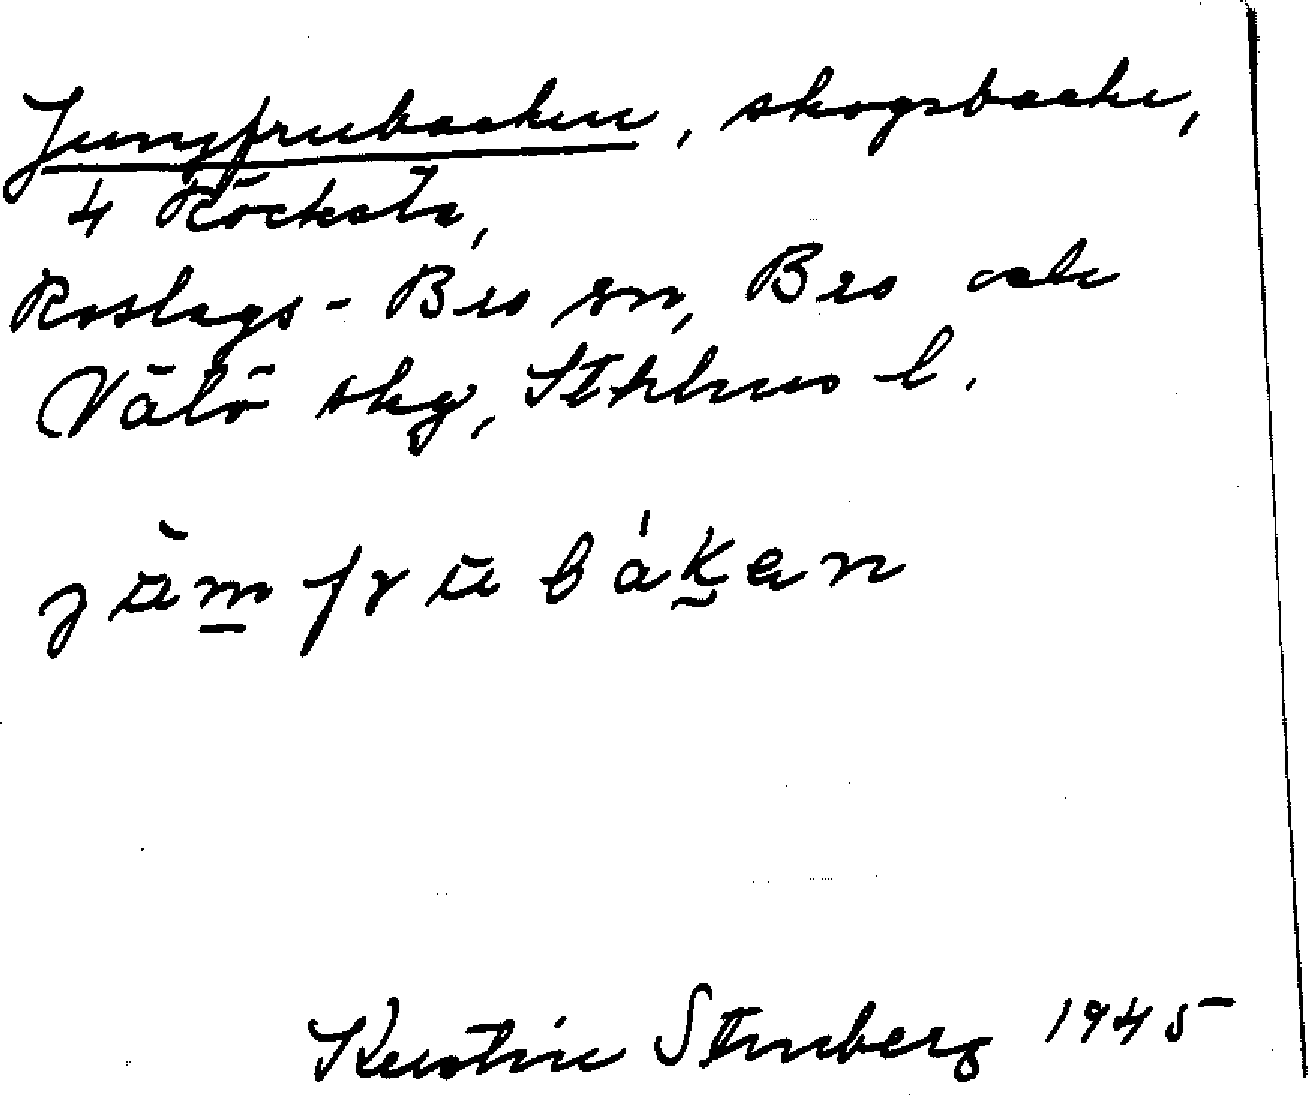 Jungfrubacken, skogsbacke,
4 Röcksta,
Roslags-Bro sn, Bro och
Vätö skg, Sthlms l.
jùmfrubákan
Kerstin Stenberg 1945